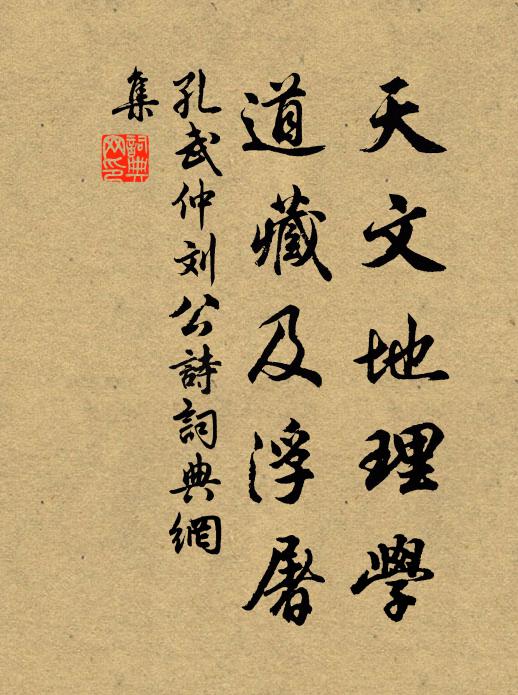 天文地理學
道藏及浮屠
孔武仲刘公詩詞典網
集
詞典网印